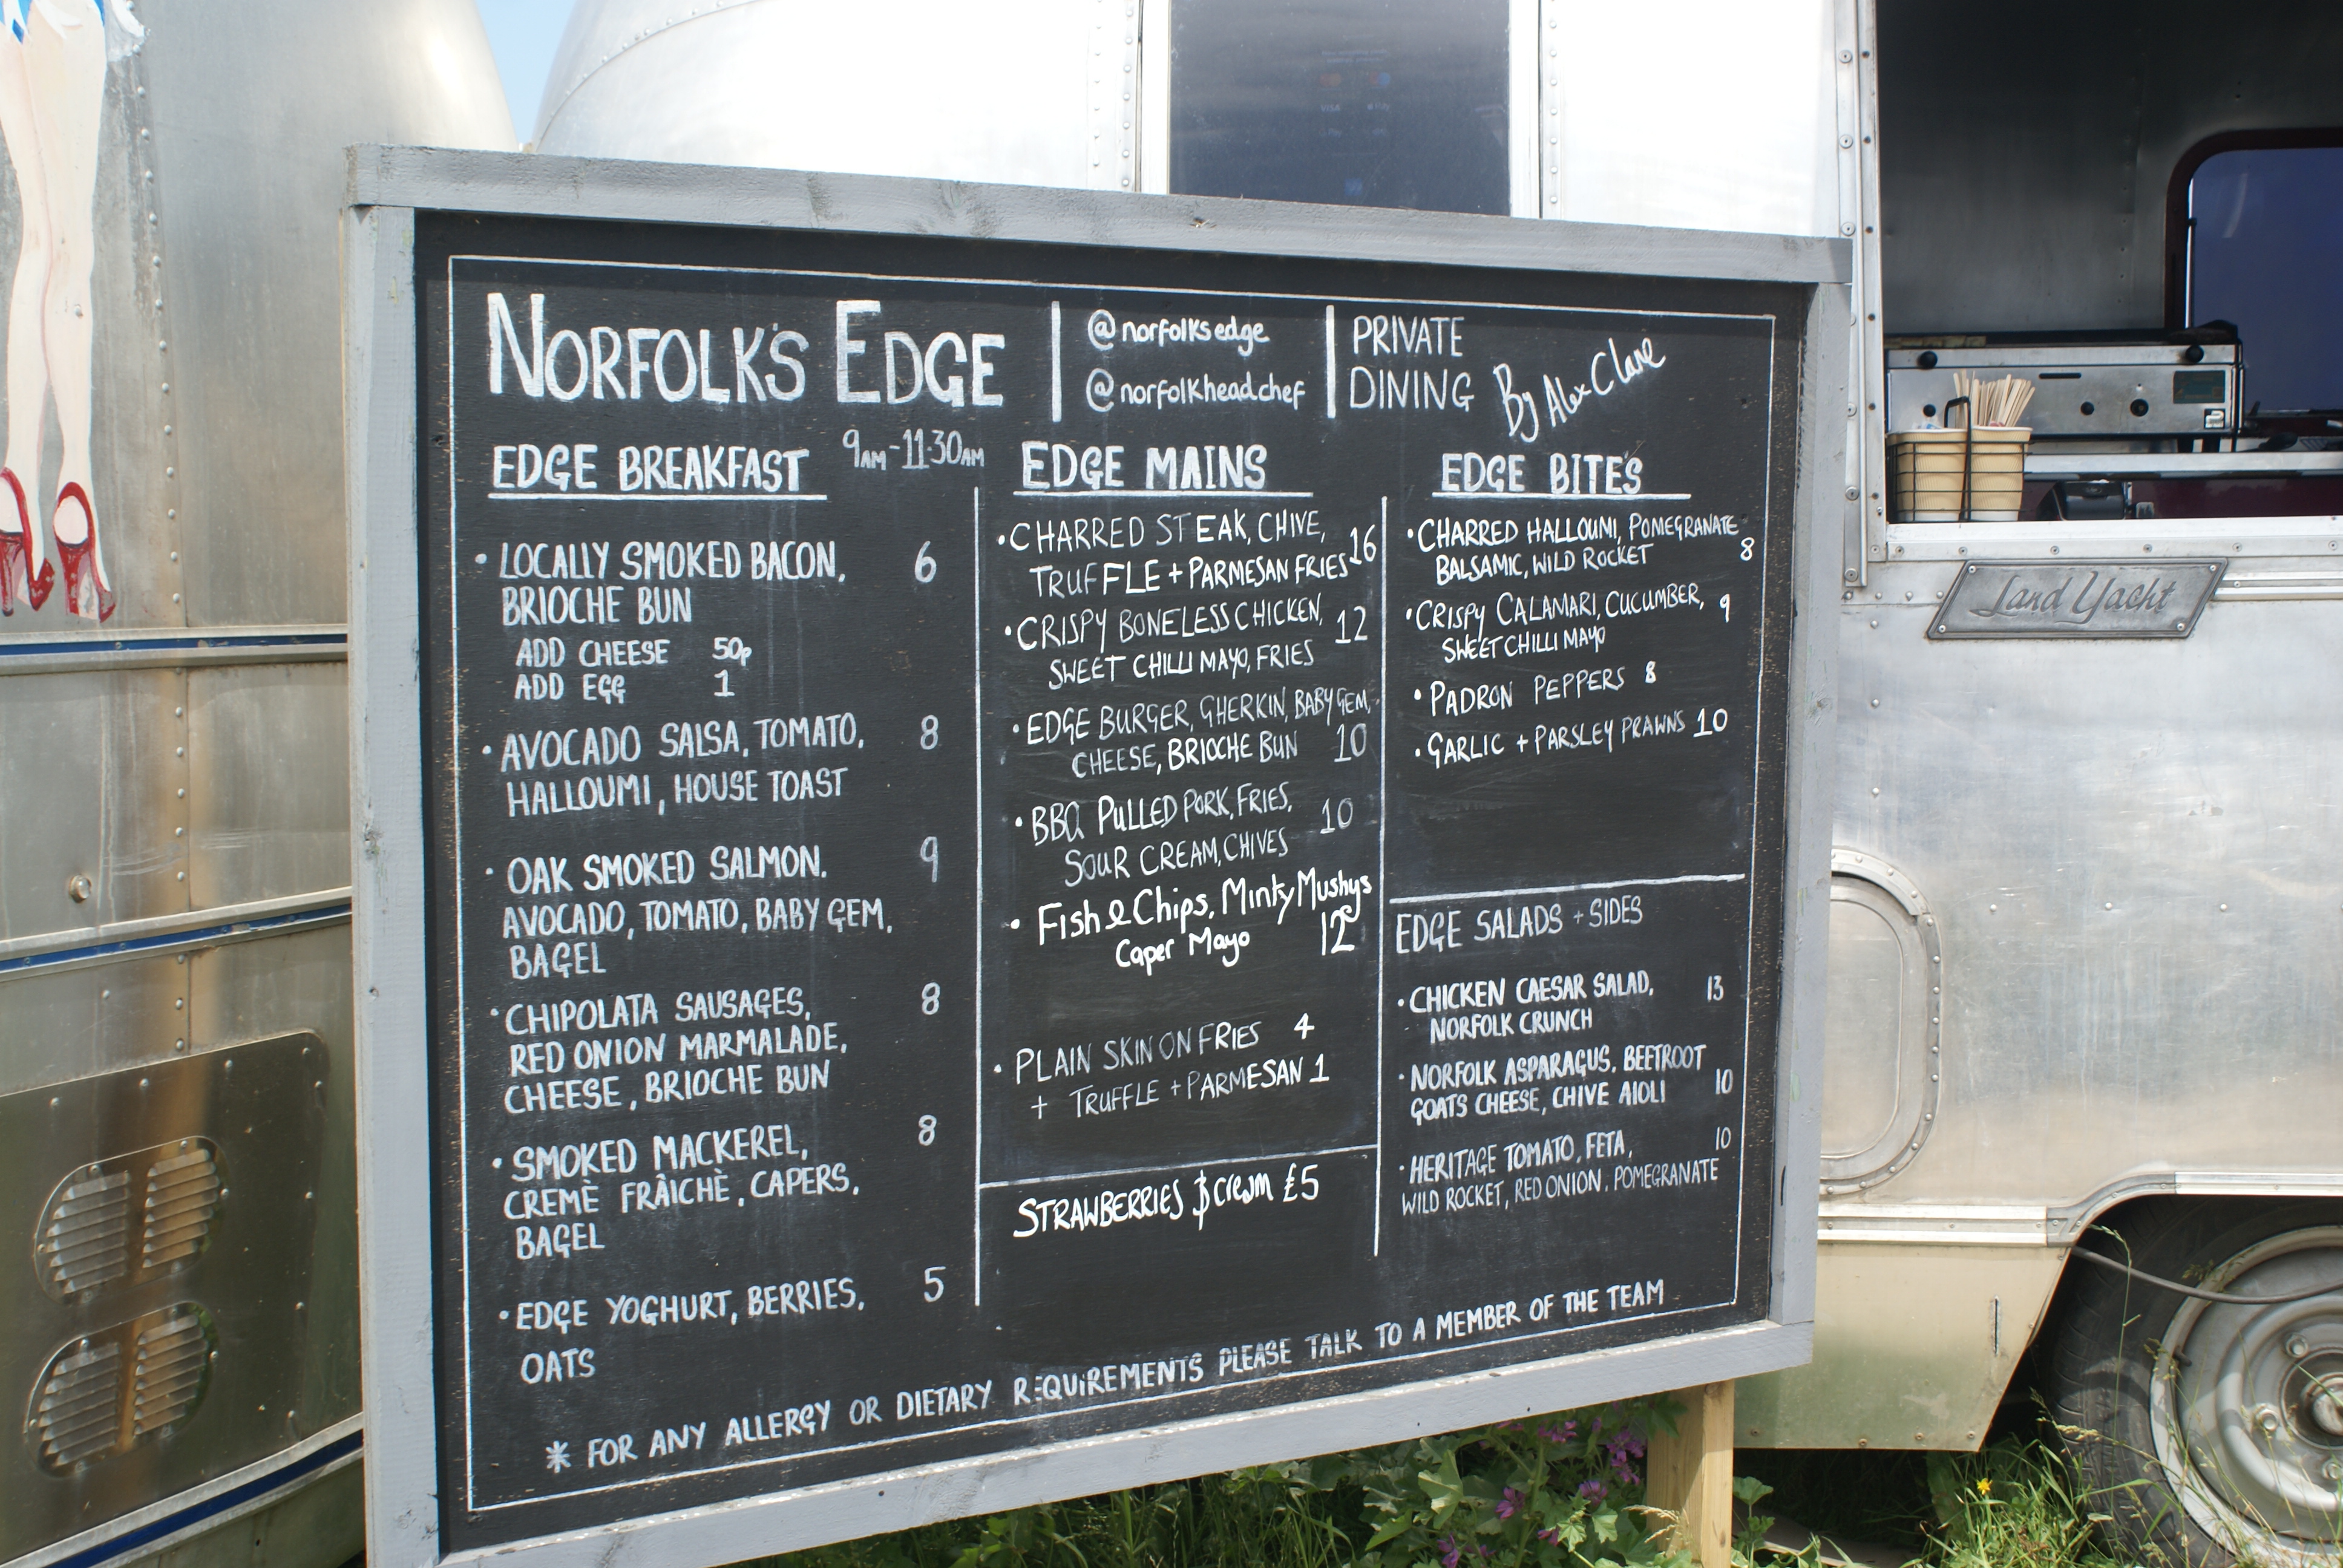 NORFOLK'S EDGE
@norfolksedge
@norfolkheadchef
PRIVATE
DINING
By Alex Clare
EDGE BREAKFAST 9AM-11:30AM
• LOCALLY SMOKED BACON, 6
BRIOCHE BUN
ADD CHEESE 50p
ADD EGG 1
• AVOCADO SALSA, TOMATO, 8
HALLOUMI, HOUSE TOAST
• OAK SMOKED SALMON. 9
AVOCADO, TOMATO, BABY GEM,
BAGEL
• CHIPOLATA SAUSAGES, 8
RED ONION MARMALADE,
CHEESE, BRIOCHE BUN
• SMOKED MACKEREL, 8
CREMÈ FRÀICHÈ, CAPERS,
BAGEL
• EDGE YOGHURT, BERRIES, 5
OATS
EDGE MAINS
• CHARRED STEAK, CHIVE,
TRUFFLE + PARMESAN FRIES 16
• CRISPY BONELESS CHICKEN, 12
SWEET CHILLI MAYO, FRIES
• EDGE BURGER, GHERKIN, BABY GEM,
CHEESE, BRIOCHE BUN 10
• BBQ PULLED PORK, FRIES, 10
SOUR CREAM, CHIVES
• Fish & Chips, Minty Mushys
Caper Mayo 12
• PLAIN SKIN ON FRIES 4
+ TRUFFLE + PARMESAN 1
STRAWBERRIES $ cream £5
EDGE BITES
• CHARRED HALLOUMI, POMEGRANATE
BALSAMIC, WILD ROCKET 8
• CRISPY CALAMARI, CUCUMBER, 9
SWEET CHILLI MAYO
• PADRON PEPPERS 8
• GARLIC + PARSLEY PRAWNS 10
EDGE SALADS + SIDES
• CHICKEN CAESAR SALAD, 13
NORFOLK CRUNCH
• NORFOLK ASPARAGUS, BEETROOT
GOATS CHEESE, CHIVE AIOLI 10
• HERITAGE TOMATO, FETA, 10
WILD ROCKET, RED ONION. POMEGRANATE
* FOR ANY ALLERGY OR DIETARY REQUIREMENTS PLEASE TALK TO A MEMBER OF THE TEAM
Land Yacht